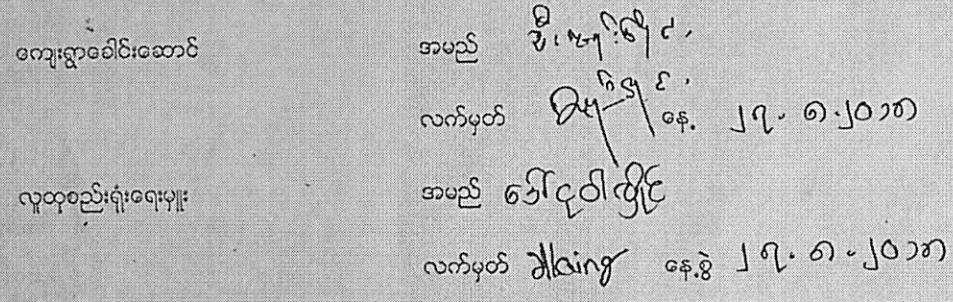 ကျေးရွာခေါင်းဆောင် အမည် ဦး
လက်မှတ် နေ့ ၂၇.၈.၂၀၁၈
လူထုစည်းရုံးရေးမှူး အမည် ဒေါ်ငုဝါလှိုင်
လက်မှတ် Hlaing နေ့စွဲ ၂၇.၈.၂၀၁၈